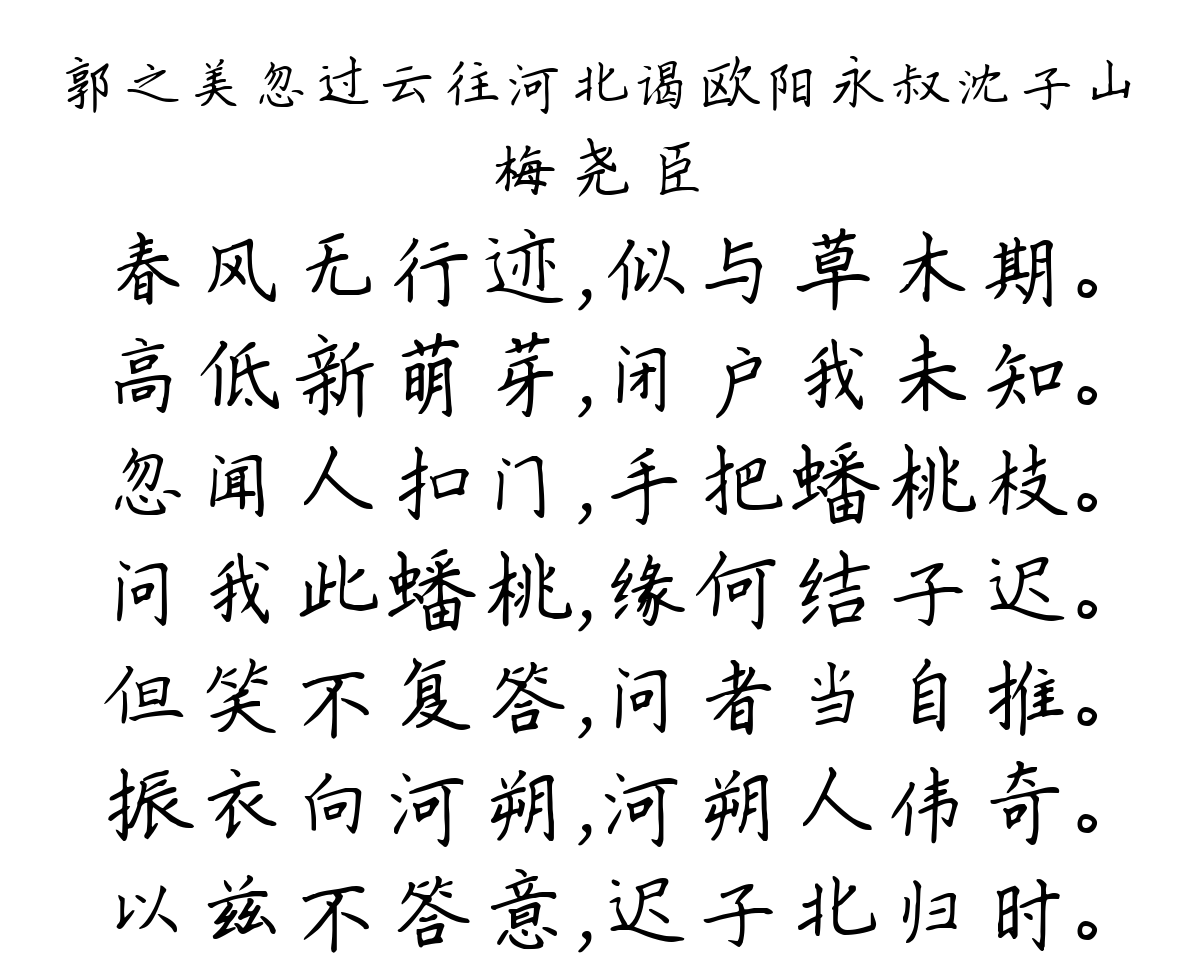 郭之美忽过云往河北谒欧阳永叔沈子山
梅尧臣
春风无行迹,似与草木期。
高低新萌芽,闭户我未知。
忽闻人扣门,手把蟠桃枝。
问我此蟠桃,缘何结子迟。
但笑不复答,问者当自推。
振衣向河朔,河朔人伟奇。
以兹不答意,迟子北归时。